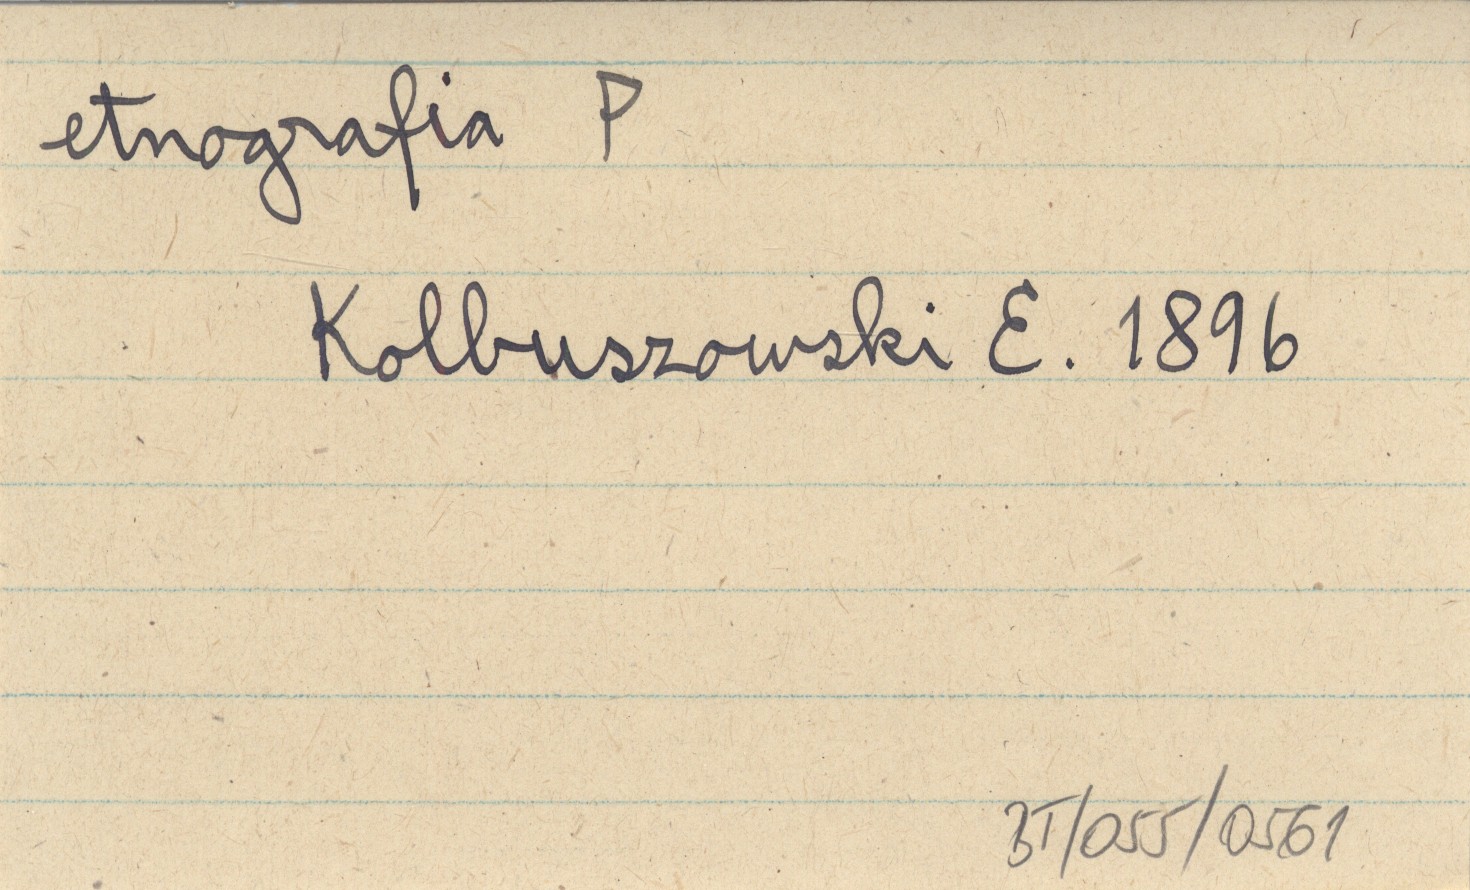 etnografia P
Kolbuszowski E. 1896
BT/055/0561